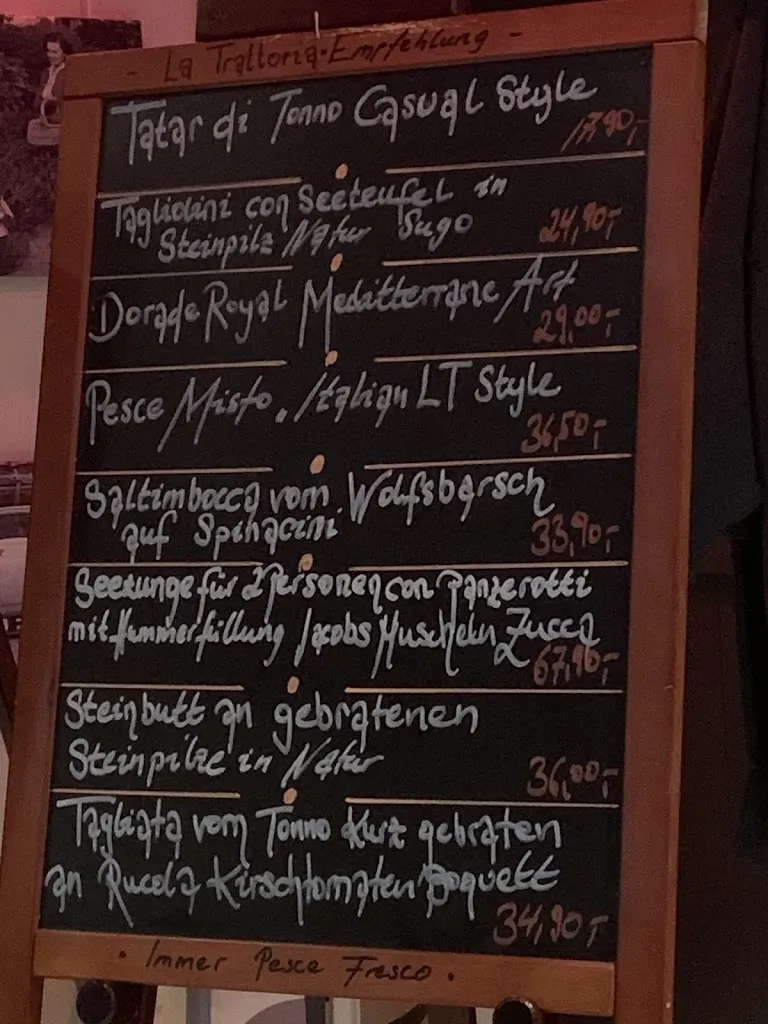 - La Trattoria • Empfehlung -
Tatar di Tonno Casual Style
17,90,-
Tagliolini con Seeteufel in
Steinpilz Natur Sugo
24,90,-
Dorade Royal Meditterrane Art
29,00,-
Pesce Misto. Italian LT Style
36,50,-
Saltimbocca vom Wolfsbarsch
auf Spinacini
33,90,-
Seezunge für 2 Personen con Panzerotti
mit Hummerfüllung Jacobs Muscheln Zucca
67,90,-
Steinbutt an gebratenen
Steinpilze in Natur
36,00,-
Tagliata vom Tonno Kurz gebraten
an Rucola Kirschtomaten Boquett
34,90,-
• Immer Pesce Fresco •